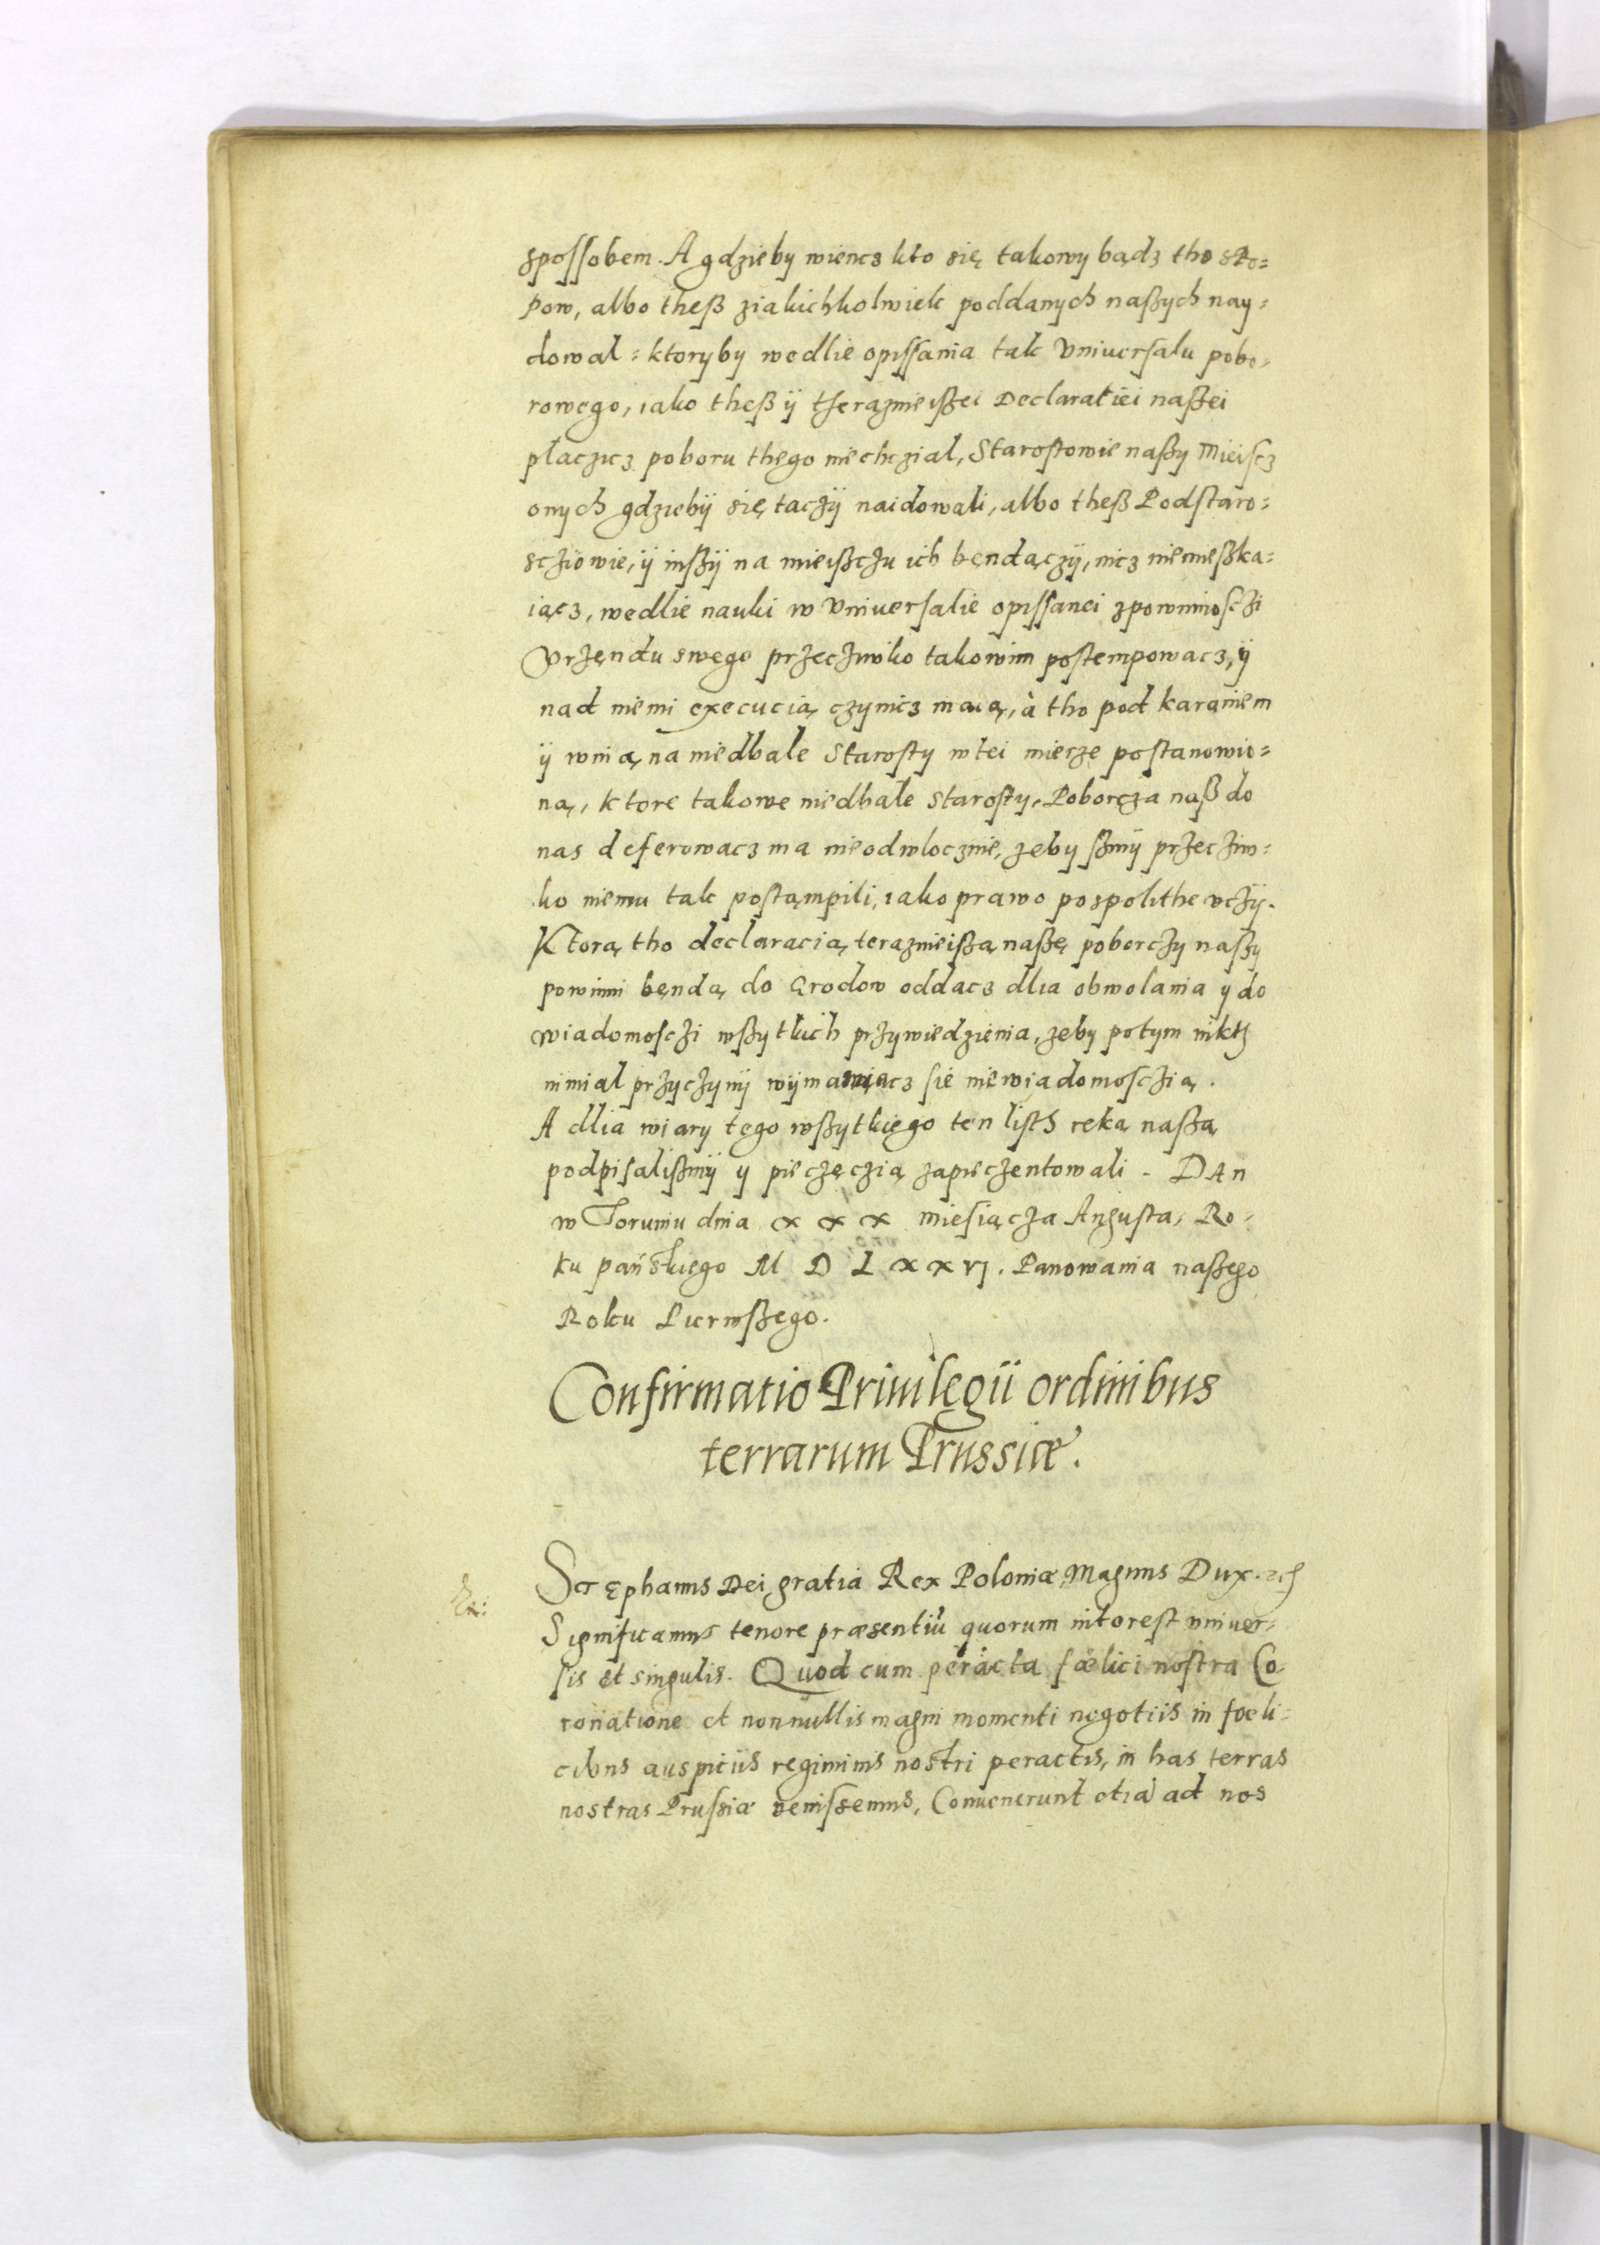 spossobem. A gdzieby wiencz kto się takowy bądz tho sto=
pow, albo theß ziakichkolwiek poddanych naßych nay=
dowal = ktoryby wedlie opissania tak Vniuersalu pobo=
rowego, iako theß ÿ therazmeißei Declaratiei naßei
placzicz poboru thego niechczial, Starostowie naßy mieiscz
onych gdziebÿ się taczÿ naidowali, albo theß Podstaro=
sczÿowie, ÿ inßÿ na mieißczu ich bęndączÿ, nicz niemießka=
iącz, wedlie nauki w Vniuersalie opissanei zpowinnosczi
Vrzęndu swego przecziwko takowim postempowacz, ÿ
nad niemi execucią czynicz maią, à tho pod karaniem
ÿ winą na niedbale Starosty wtei mierze postanowio=
ną, ktore takowe niedbale Starosty, Poborcza naß do
nas deferowacz ma nieodwlocznie, zeby ßmÿ przecziw=
ko niemu tak postąmpili, iako prawo pospolithe vczÿ.
Ktorą tho declaracią terazmeißą naßę poborczy naßy
powinni bęndą do Grodow oddacz dlia obwolania y do
wiadomosczi wßytkich przywiedzienia, zeby potym nikth
nimial przyczynÿ wÿmawiacz sie niewiadomosczią.
A dlia wiary tego wßytkiego ten listh reką naßą
podpisalißmÿ y pieczęczią zapieczentowali. Dan
w Toruniu dnia xxx miesiącza Augusta, Ro=
ku pańskiego M D L xxvj. Panowania naßego
Roku Pierwßego.
Confirmatio Priuilegii ordinibus
terrarum Prussiæ.
Stephanus Dei gratia Rex Poloniæ, Magnus Dux. etc
Significamus tenore præsentiũ quorum interest vniuer=
sis et singulis. Quod cum peracta fælici nostra Co=
ronatione et nonnullis magni momenti negotiis in fœli=
cibus auspiciis regiminis nostri peractis, in has terras
nostras Prussiæ venissemus, Conuenerunt etiã ad nos